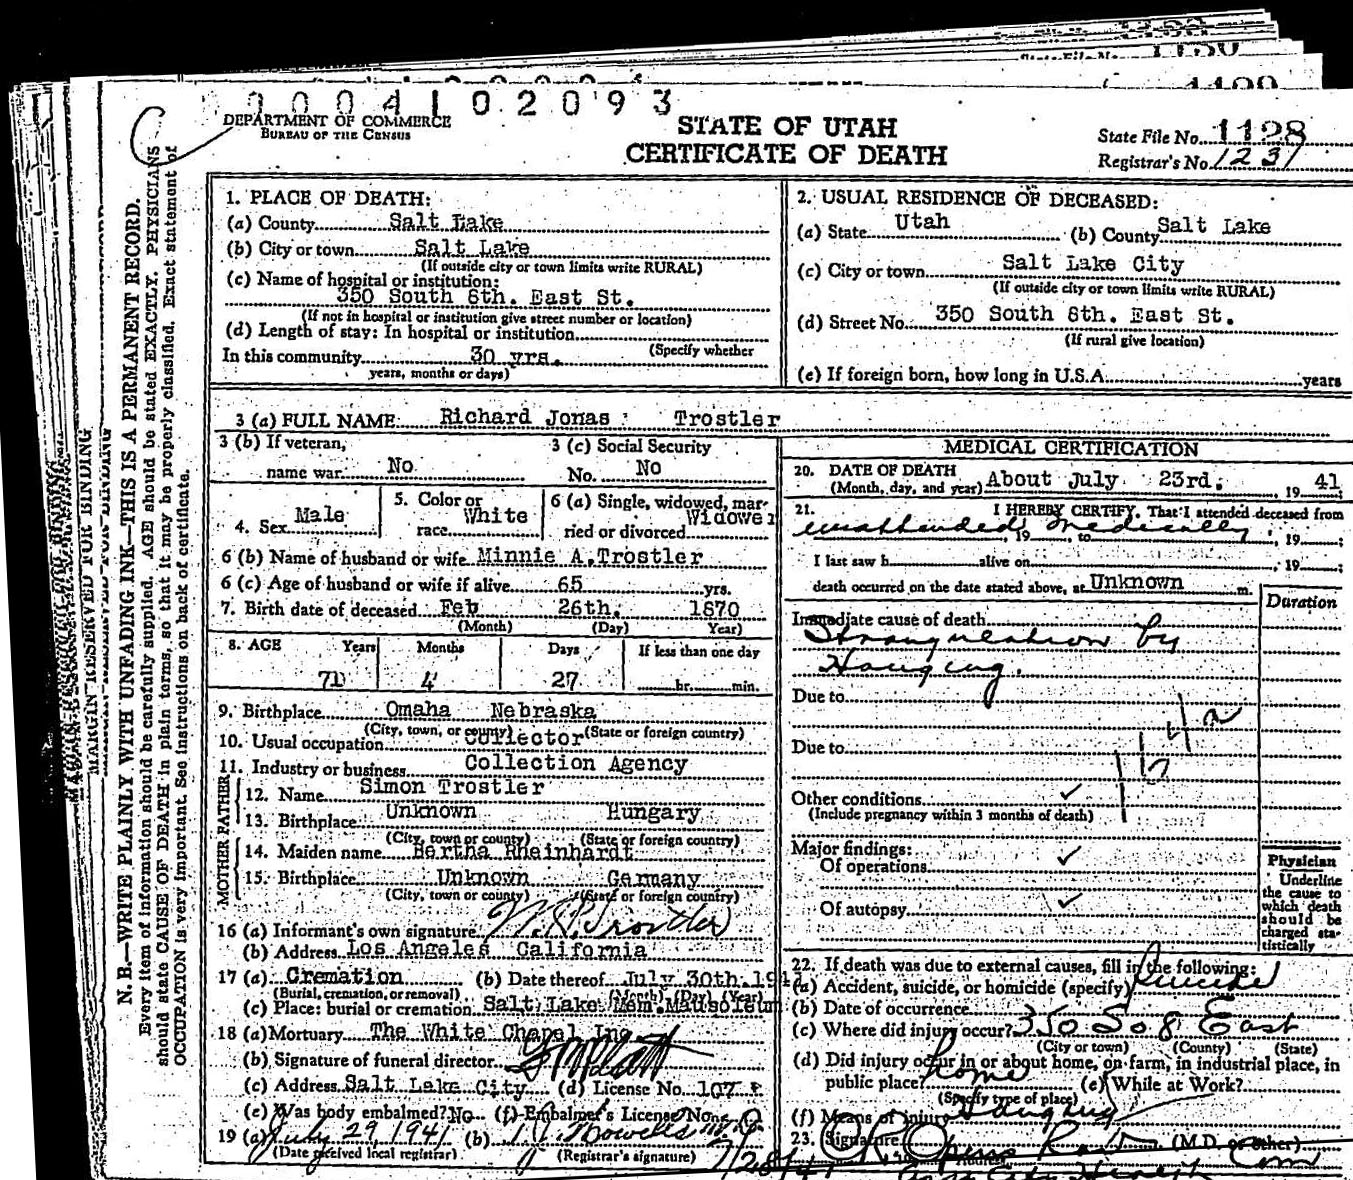 0004102093
DEPARTMENT OF COMMERCE
BUREAU OF THE CENSUS
STATE OF UTAH
CERTIFICATE OF DEATH
State File No. 1128
Registrar's No. 1231
MARGIN RESERVED FOR BINDING
N. B.—WRITE PLAINLY WITH UNFADING INK—THIS IS A PERMANENT RECORD.
Every item of information should be carefully supplied. AGE should be stated EXACTLY. PHYSICIANS
should state CAUSE OF DEATH in plain terms, so that it may be properly classified. Exact statement of
OCCUPATION is very important. See instructions on back of certificate.
1. PLACE OF DEATH:
(a) County Salt Lake
(b) City or town Salt Lake
(If outside city or town limits write RURAL)
(c) Name of hospital or institution:
350 South 8th. East St.
(If not in hospital or institution give street number or location)
(d) Length of stay: In hospital or institution
(Specify whether
In this community 30 yrs.
years, months or days)
2. USUAL RESIDENCE OF DECEASED:
(a) State Utah (b) County Salt Lake
(c) City or town Salt Lake City
(If outside city or town limits write RURAL)
(d) Street No. 350 South 8th. East St.
(If rural give location)
(e) If foreign born, how long in U.S.A. years
3 (a) FULL NAME: Richard Jonas Trostler
3 (b) If veteran, name war No
3 (c) Social Security No. No
4. Sex Male
5. Color or race White
6 (a) Single, widowed, married or divorced Widower
6 (b) Name of husband or wife Minnie A. Trostler
6 (c) Age of husband or wife if alive 65 yrs.
7. Birth date of deceased Feb 26th. 1870
(Month) (Day) Year)
8. AGE Years Months Days If less than one day
71 4 27 hr. min.
9. Birthplace Omaha Nebraska
(City, town, or county) (State or foreign country)
10. Usual occupation Collector
11. Industry or business Collection Agency
FATHER
12. Name Simon Trostler
13. Birthplace Unknown Hungary
(City, town or county) (State or foreign country)
MOTHER
14. Maiden name Bertha Rheinhardt
15. Birthplace Unknown Germany
(City, town or county) (State or foreign country)
16 (a) Informant's own signature Trostler
(b) Address Los Angeles California
17 (a) Cremation (b) Date thereof July 30th. 1941
(Burial, cremation, or removal) (Month) (Day) (Year)
(c) Place: burial or cremation Salt Lake Mem. Mausoleum
18 (a) Mortuary The White Chapel Inc
(b) Signature of funeral director
(c) Address Salt Lake City (d) License No. 107
(e) Was body embalmed? No (f) Embalmer's License None
19 (a) July 29, 1941 (b)
(Date received local registrar) (Registrar's signature)
MEDICAL CERTIFICATION
20. DATE OF DEATH
(Month, day, and year) About July 23rd. , 19 41
21. I HEREBY CERTIFY, That I attended deceased from
unattended medically , 19 to , 19 ;
I last saw h alive on , 19 ;
death occurred on the date stated above, at Unknown m.
Duration
Immediate cause of death
Strangulation by
Hanging.
Due to
Due to
Other conditions
(Include pregnancy within 3 months of death)
Major findings:
Of operations
Of autopsy
Physician
Underline
the cause to
which death
should be
charged sta-
tistically
22. If death was due to external causes, fill in the following:
(a) Accident, suicide, or homicide (specify) Suicide
(b) Date of occurrence
(c) Where did injury occur? 350 So 8 East
(City or town) (County) (State)
(d) Did injury occur in or about home, on farm, in industrial place, in
public place? home (e) While at Work?
(Specify type of place)
(f) Means of injury Hanging
23. Signature (M.D. or other)
Address